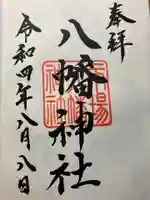 奉拝
八幡神社
令和四年八月八日